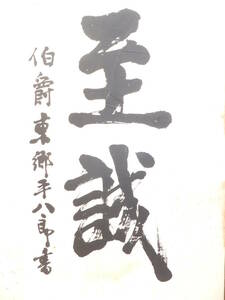 至誠
伯爵東郷平八郎書